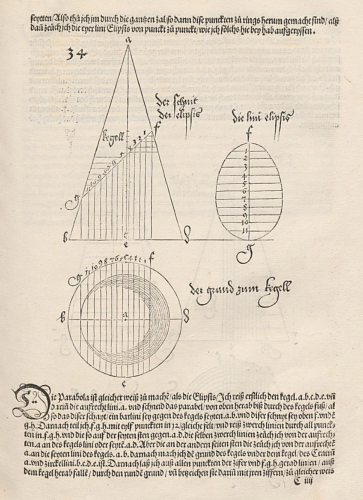 seytten / Also thů ich im durch die gantzen zal so dann dise puncktẽ zů rings herum gemacht sind / alß
dañ zeüch ich die eyer lini Elipsis von punckt zů punckt / wie ich solchs hie bey hab auffgeryssen.
34
a
der schnit
der elipsis
die lini elipsis
kegell
f
f
1
2
3
4
5
6
7
8
9
10
11
g
g
b
c
e
d
g 11 10 9 8 7 6 5 4 3 2 1 f
b
a
d
der grund zum kegell
c
Die Parabola ist gleicher weiß zů machẽ / als die Elipsis / Ich reiß erstlich den kegel .a.b.c.d.e. vñ
die auffrecht lini .a. vnd schneid das parabel von oben herab biß durch des kegels fůß / al
so das diser schnit / ein barlini sey gegen des kegels seyten .a.b. vnd diser schnyt sey oben f. vnd
g.h. Darnach teil ich f.g.h. mit eylf puncktẽ in .12. gleiche felt / vnd reiß zwerch linien durch all punck-
ten in .f.g.h. vnd die so auf der seyten sten gegen .a.d. die selben zwerch linien zeüch ich von der auffrechtẽ
.a. an des kegels lini oder seytẽ .a.d. Aber die an der andern seiten sten die zeüch ich von der auffrechtẽ
.a. an die seyten lini des kegels .a.b. darnach mach ich dẽ grund des kegels vnden / des kegels / des Centrũ
.a. vnd zirckellini .b.c.d.e. ist. Darnach laß ich auß allen puncten der zifer vnd f.g.h gerad linien / auß
dem kegel herab fallẽ / durch den runde grund / vñ bezeichen sie dañ mit yren zifferñ / zů gleicher weis
C iiij